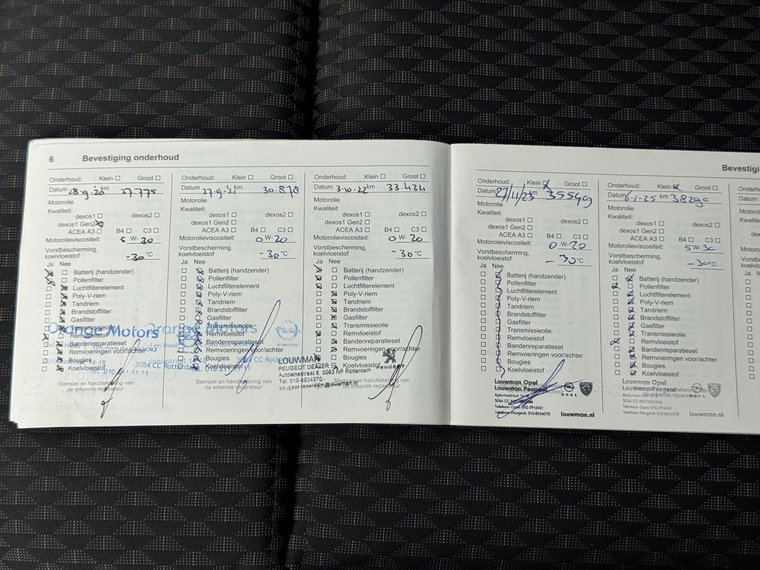 6 Bevestiging onderhoud
Onderhoud: Klein Groot
Datum 28-9-20 km 27.775
Motorolie
Kwaliteit:
dexos1 dexos2
dexos1 Gen2
ACEA A3 B4 C3
Motorolieviscositeit: 5 W-30
Vorstbescherming,
koelvloeistof -30°C
Ja Nee
Batterij (handzender)
Pollenfilter
Luchtfilterelement
Poly-V-riem
Tandriem
Brandstoffilter
Gasfilter
Bandenreparatieset
Koelvloeistof
Orange Motors
Stempel en handtekening van
de erkende reparateur
Onderhoud: Klein Groot
Datum 27-9-21 km 30.878
Motorolie
Kwaliteit:
dexos1 dexos2
dexos1 Gen2
ACEA A3 B4 C3
Motorolieviscositeit: 0 W-20
Vorstbescherming,
koelvloeistof -30°C
Ja Nee
Batterij (handzender)
Pollenfilter
Luchtfilterelement
Poly-V-riem
Tandriem
Brandstoffilter
Gasfilter
Transmissieolie
Remvloeistof
Bandenreparatieset
Remvoeringen voor/achter
Bougies
Koelvloeistof
Orange Motors
3084 CC Rotterdam
Stempel en handtekening van
de erkende reparateur
Onderhoud: Klein Groot
Datum 3-10-22 km 33.424
Motorolie
Kwaliteit:
dexos1 dexos2
dexos1 Gen2
ACEA A3 B4 C3
Motorolieviscositeit: 0 W-20
Vorstbescherming,
koelvloeistof -30°C
Ja Nee
Batterij (handzender)
Pollenfilter
Luchtfilterelement
Poly-V-riem
Tandriem
Brandstoffilter
Gasfilter
Transmissieolie
Remvloeistof
Bandenreparatieset
Remvoeringen voor/achter
Bougies
Koelvloeistof
LOUWMAN
PEUGEOT DEALER
PEUGEOT
Stempel en handtekening van
de erkende reparateur
Bevestigi
Onderhoud: Klein Groot
Datum 27/11/23 km 35590
Motorolie
Kwaliteit:
dexos1 dexos2
dexos1 Gen2
ACEA A3 B4 C3
Motorolieviscositeit: 0 W-20
Vorstbescherming,
koelvloeistof -30°C
Ja Nee
Batterij (handzender)
Pollenfilter
Luchtfilterelement
Poly-V-riem
Tandriem
Brandstoffilter
Gasfilter
Transmissieolie
Remvloeistof
Bandenreparatieset
Remvoeringen voor/achter
Bougies
Koelvloeistof
Louwman Opel
Louwman Peugeot
OPEL
3084 CC ROTTERDAM
louwman.nl
Onderhoud: Klein Groot
Datum 6-1-25 km 38290
Motorolie
Kwaliteit:
dexos1 dexos2
dexos1 Gen2
ACEA A3 B4 C3
Motorolieviscositeit: 5 W-30
Vorstbescherming,
koelvloeistof -30°C
Ja Nee
Batterij (handzender)
Pollenfilter
Luchtfilterelement
Poly-V-riem
Tandriem
Brandstoffilter
Gasfilter
Transmissieolie
Remvloeistof
Bandenreparatieset
Remvoeringen voor/achter
Bougies
Koelvloeistof
Louwman Opel
Louwman Peugeot
OPEL
3084 CC ROTTERDAM
louwman.nl
Onder
Datum
Motor
Kwalit
Motor
Vorstb
koelvl
Ja N